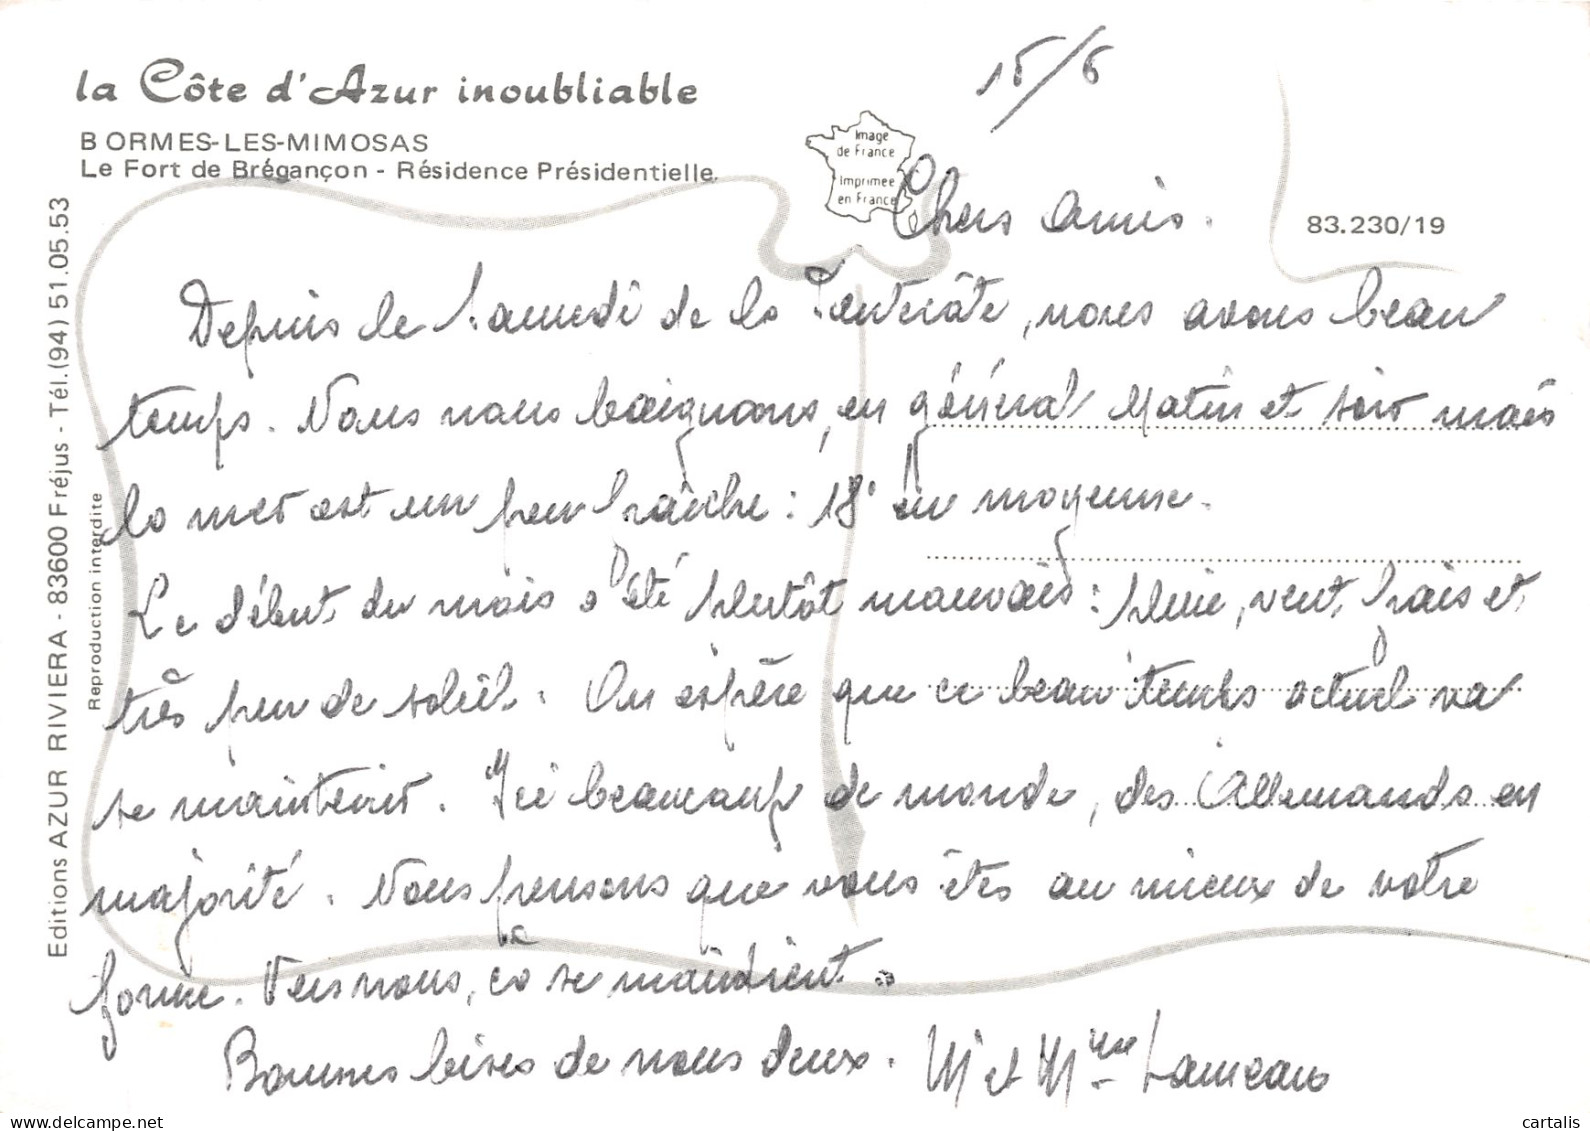 la Côte d'Azur inoubliable
BORMES-LES-MIMOSAS
Le Fort de Brégançon - Résidence Présidentielle
15/6
Image
de France
Imprimee
en France
83.230/19
Editions AZUR RIVIERA - 83600 Fréjus - Tél.(94) 51.05.53
Reproduction interdite
Chers amis.
Depuis le Samedi de la Pentecôte, nous avons beau
temps. Nous nous baignons, en général Matin et soir mais
la mer est un peu fraîche : 18° en moyenne.
Le début du mois a été plutôt mauvais : pluie, vent frais et
très peu de soleil. On espère que ce beau temps actuel va
se maintenir. Ici beaucoup de monde, des Allemands en
majorité. Nous pensons que vous êtes au mieux de votre
forme. Vers nous, ça se maintient.
Bonnes bises de nous deux. Mr et Mme
cartalis
www.delcampe.net